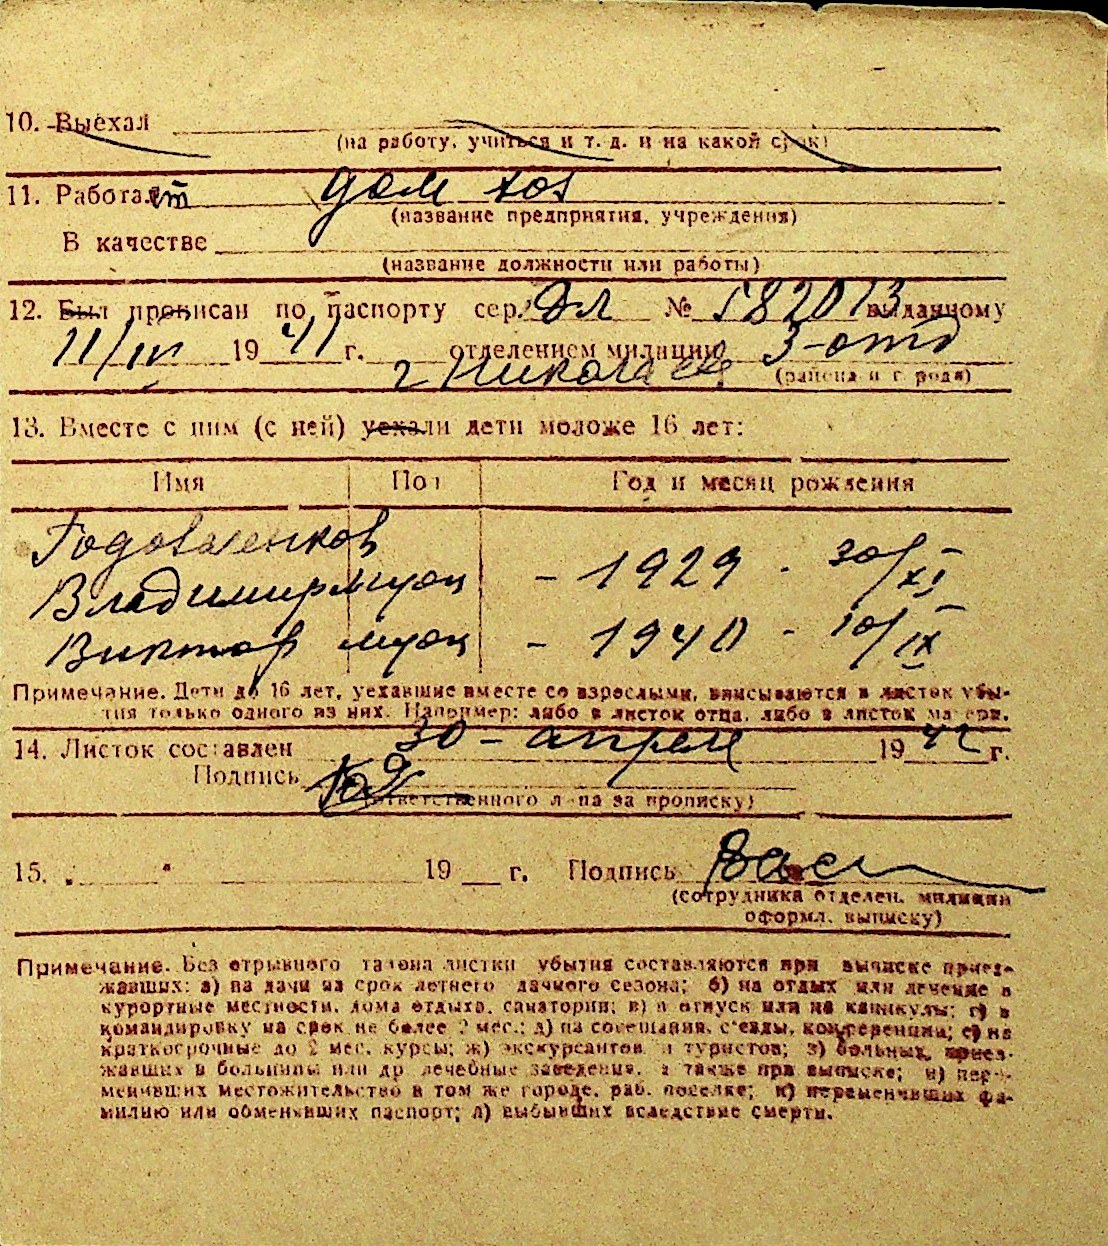 10. Выехал
(на работу, учиться и т. д. и на какой срок)
11. Работает дом хоз
(название предприятия, учреждения)
В качестве
(название должности или работы)
12. Был прописан по паспорту сер. № 582013 выданному
11/III 1941 г. отделением милиции 3-отд
г Николаев (района и города)
13. Вместе с ним (с ней) уехали дети моложе 16 лет:
Имя Пол Год и месяц рождения
Годоваленков
Владимир муж - 1929 - 30/XI
Виктор муж - 1940 - 10/IX
Примечание. Дети до 16 лет, уехавшие вместе со взрослыми, вписываются в листок убы-
тия только одного из них. Например: либо в листок отца, либо в листок матери.
14. Листок составлен 30 - апреля 1942 г.
Подпись
(ответственного лица за прописку)
15. 19 г. Подпись Вас
(сотрудника отделен. милиции
оформл. выписку)
Примечание. Без отрывного талона листки убытия составляются при выписке приез-
жавших: а) на дачи на срок летнего дачного сезона; б) на отдых или лечение в
курортные местности, дома отдыха, санатории; в) в отпуск или на каникулы; г) в
командировку на срок не более 2 мес.; д) на совещания, с'езды, конференции; е) на
краткосрочные до 2 мес. курсы; ж) экскурсантов и туристов; з) больных, приез-
жавших в больницы или др лечебные заведения, а также при выписке; и) пере-
менивших местожительство в том же городе, раб. поселке; к) переменивших фа-
милию или обменявших паспорт; л) выбывших вследствие смерти.